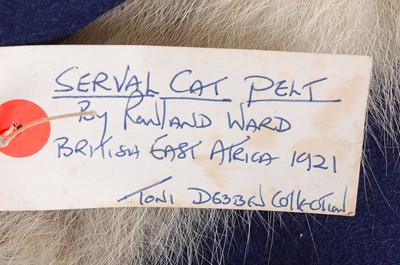 SERVAL CAT PELT
By ROWLAND WARD
BRITISH EAST AFRICA 1921
TONI DEBBEN COLLECTION